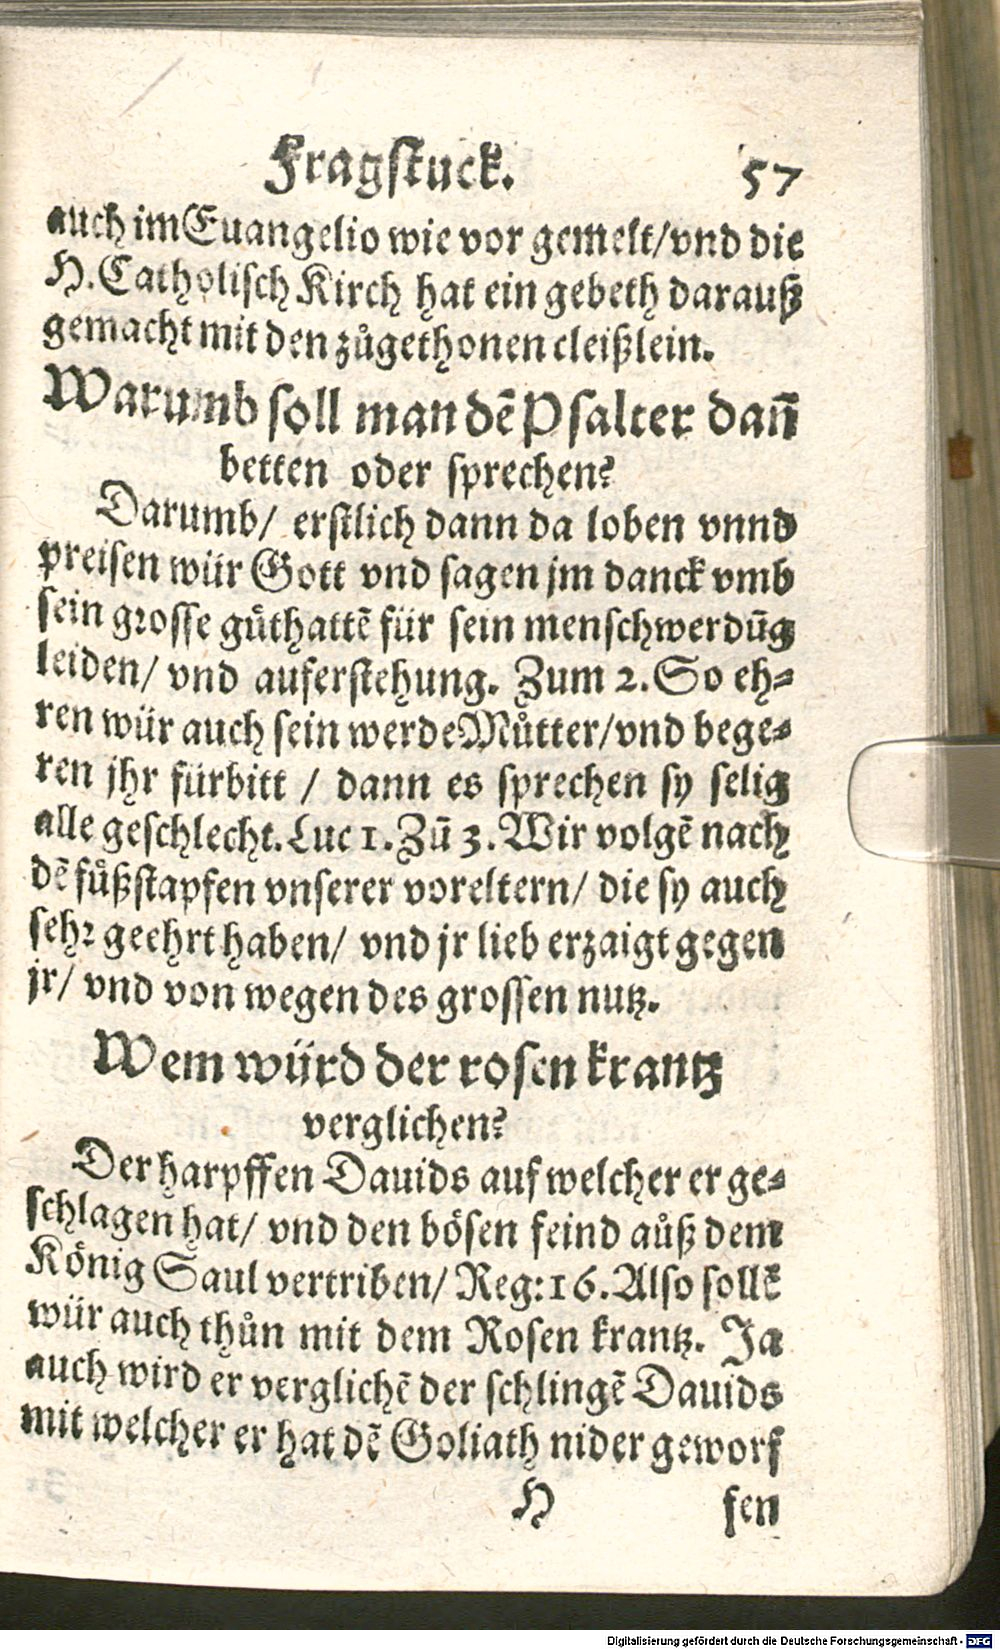 Fragstuck. 57
auch im Euangelio wie vor gemelt/vnd die
H. Catholisch Kirch hat ein gebeth darauß
gemacht mit den zůgethonen cleißlein.
Warumb soll man dē Psalter dañ
betten oder sprechen?
Darumb/ erstlich dann da loben vnnd
preisen wür Gott vnd sagen jm danck vmb
sein grosse gůthattē für sein menschwerdūg
leiden/ vnd auferstehung. Zum 2. So eh-
ren wür auch sein werde Můtter/vnd bege-
ren jhr fürbitt / dann es sprechen sy selig
alle geschlecht. Luc 1. Zū 3. Wir volgē nach
dē fůßstapfen vnserer voreltern/ die sy auch
sehr geehrt haben/ vnd jr lieb erzaigt gegen
jr/ vnd von wegen des grossen nutz.
Wem würd der rosen krantz
verglichen?
Der harpffen Dauids auf welcher er ge-
schlagen hat/ vnd den bösen feind aůß dem
König Saul vertriben/ Reg: 16. Also sollē
wür auch thůn mit dem Rosen krantz. Ja
auch wird er verglichē der schlingē Dauids
mit welcher er hat dē Goliath nider geworf
H fen
Digitalisierung gefördert durch die Deutsche Forschungsgemeinschaft - DFG